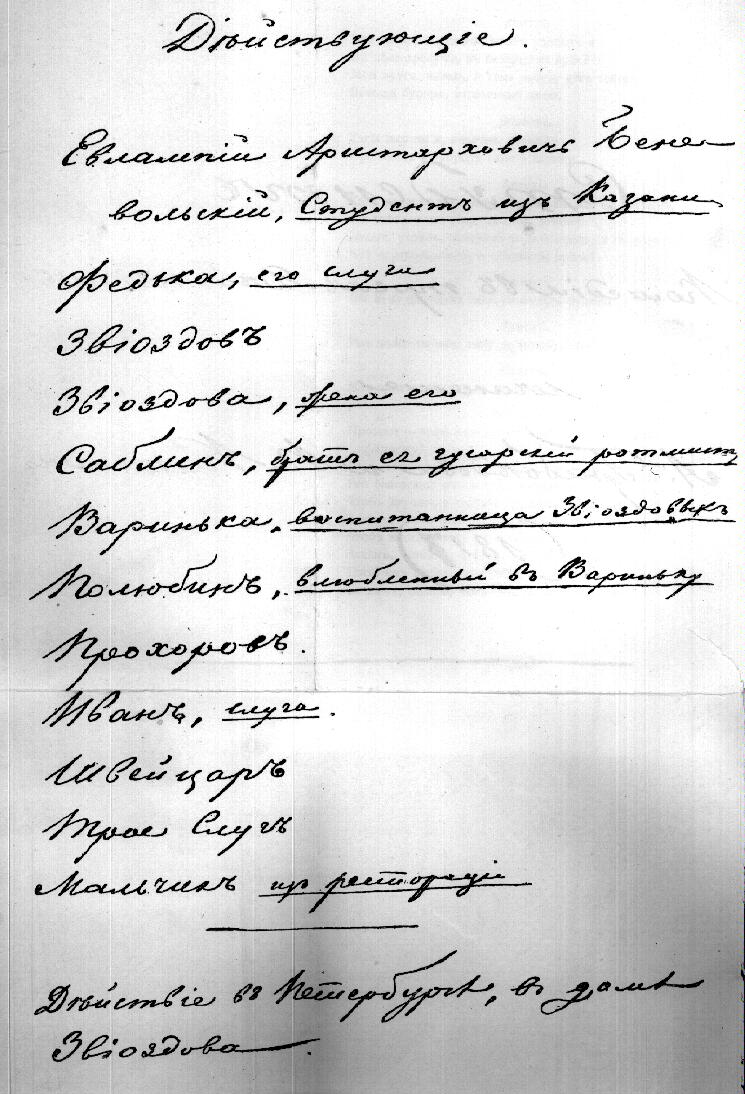 Дѣйствующіе.
Евлампій Аристарховичъ Бене-
вольскій, Студентъ изъ Казани
Федька, его слуга
Звіоздовъ
Звіоздова, жена его
Саблинъ, братъ ея гусарскій ротмистръ
Варинька, воспитанница Звіоздовыхъ
Полюбинъ, влюбленный въ Вариньку
Прохоровъ.
Иванъ, слуга.
Швейцаръ
Трое Слугъ
Мальчикъ изъ ресторацiи
Дѣйствіе въ Петербургѣ, въ домѣ
Звіоздова.